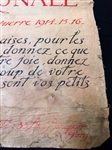 ONALE
Guerre 1914.15.16.
aises, pour les
donnez ce que
re joie, donnez
coup de votre
sont vos petits